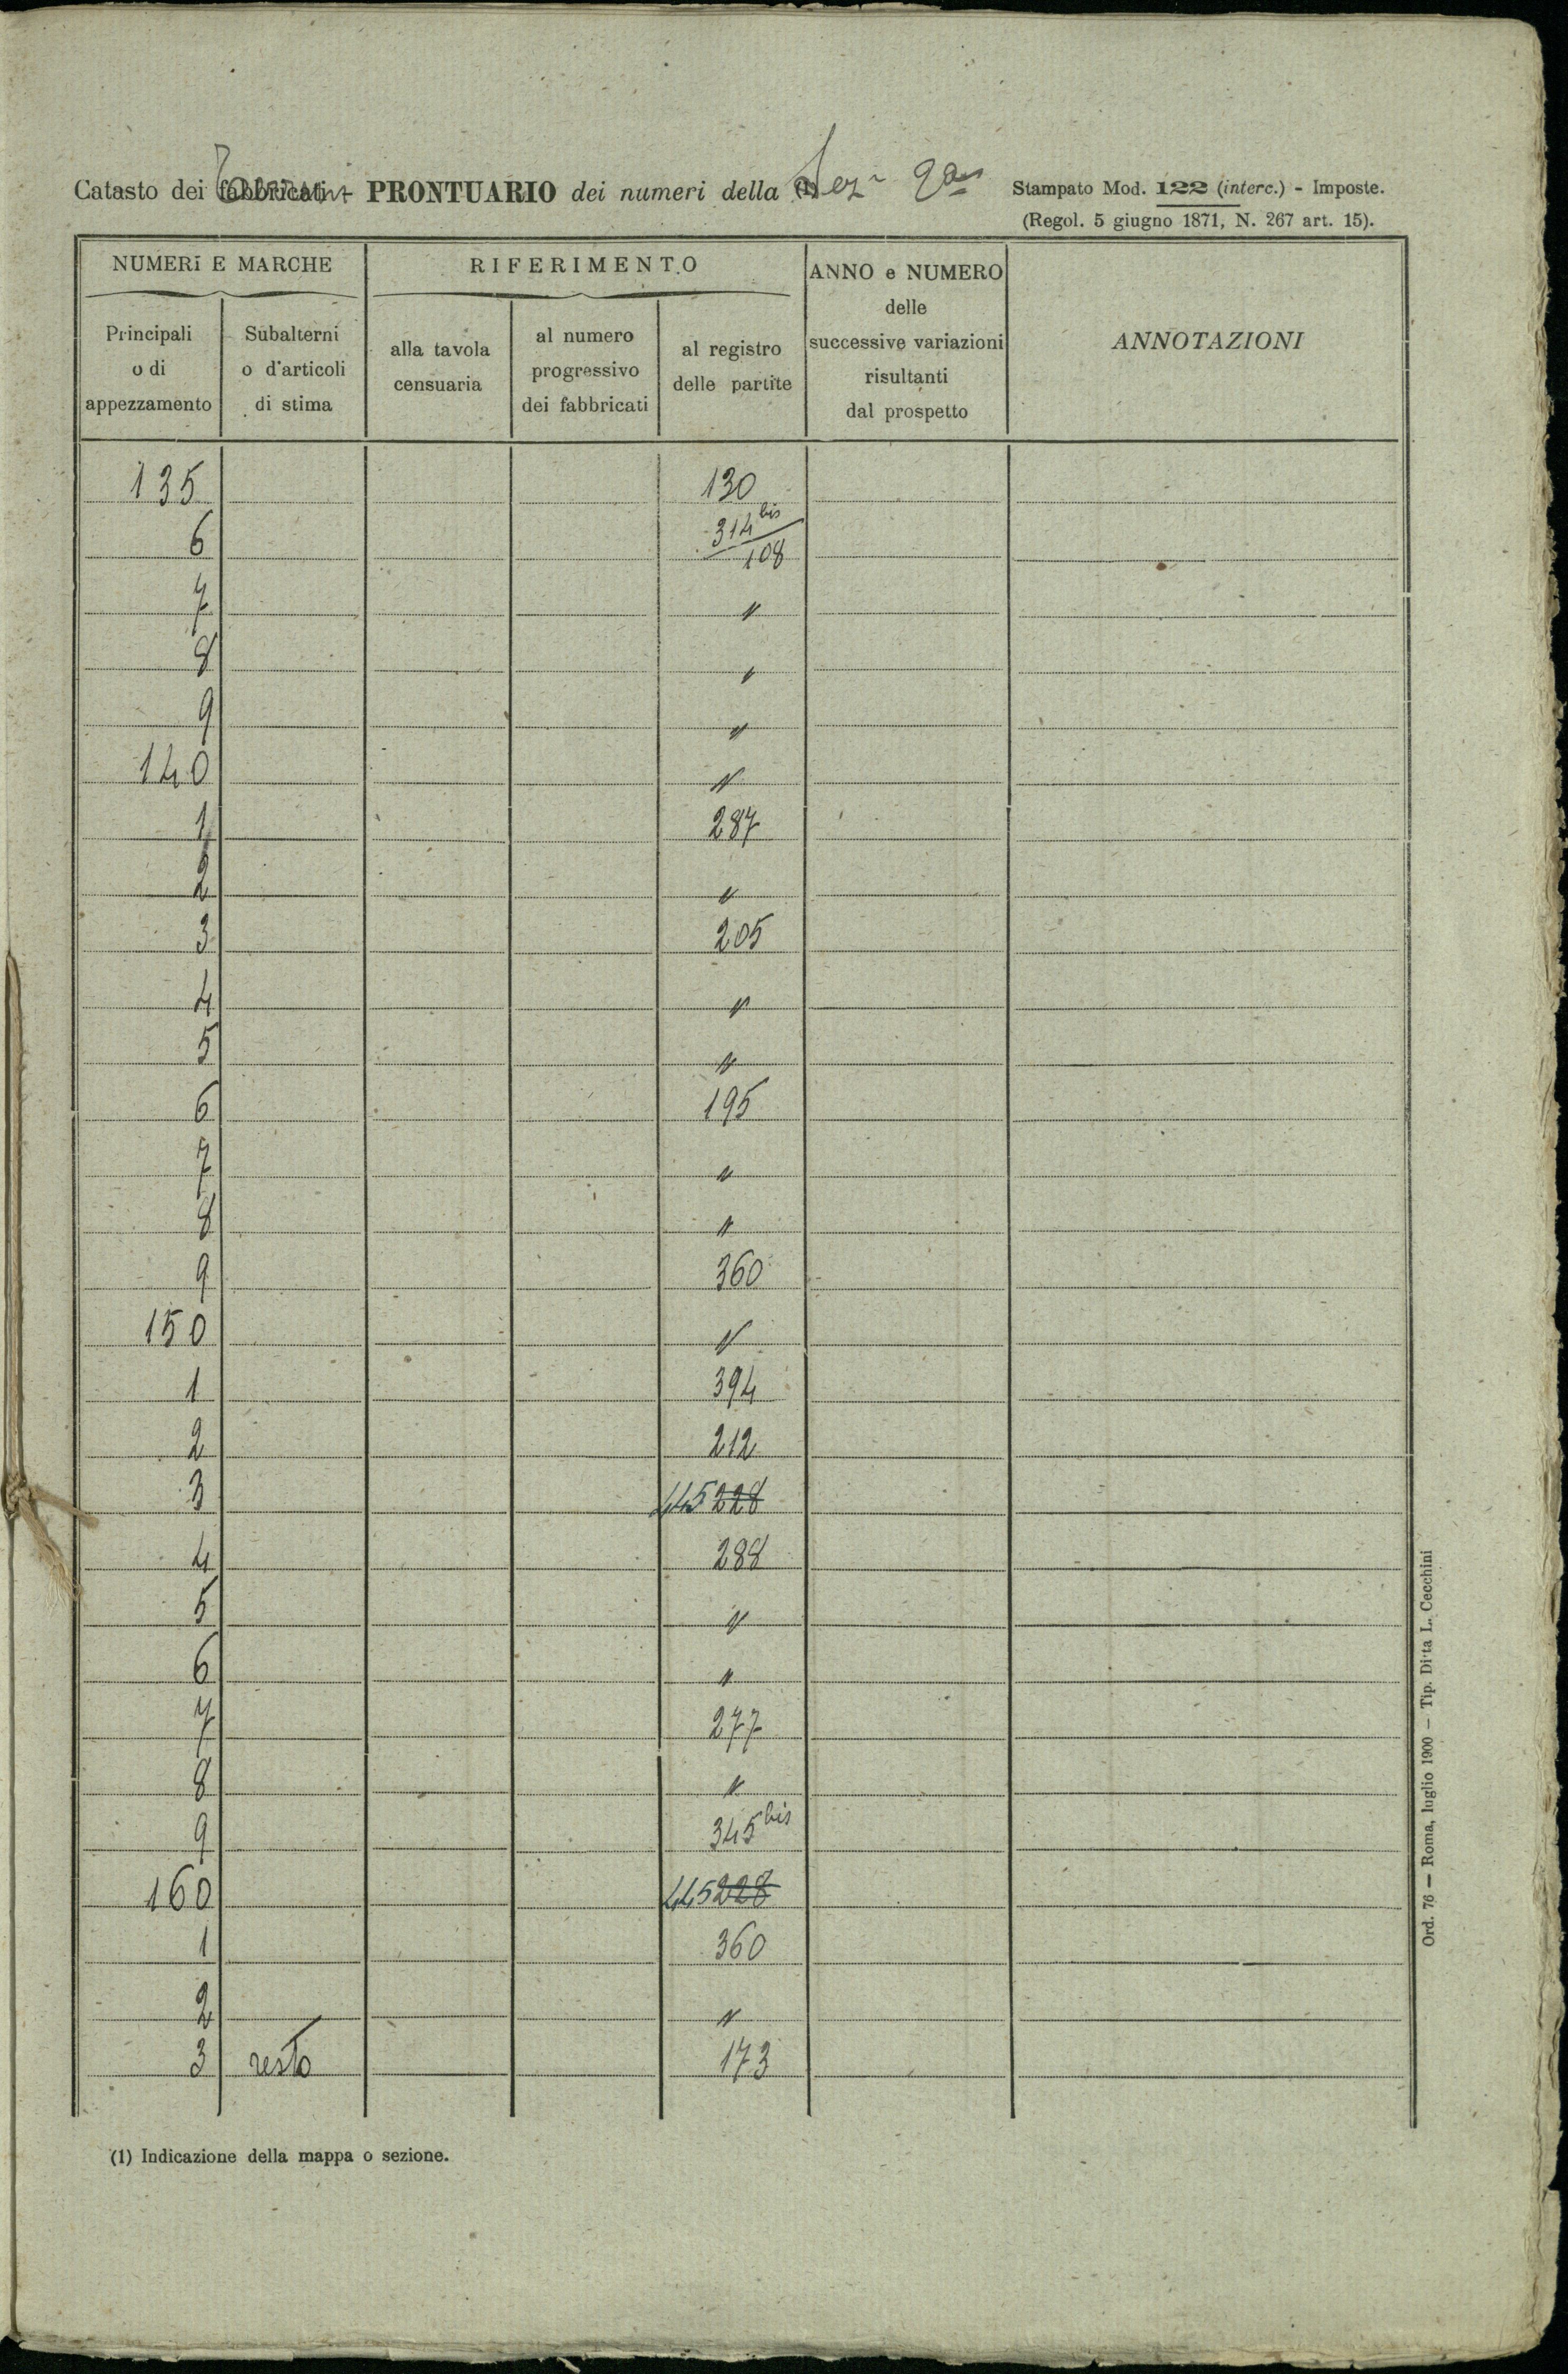 Catasto dei fabbricati - PRONTUARIO dei numeri della (1) Sez. 2a Stampato Mod. 122 (interc.) - Imposte.
Terreni
(Regol. 5 giugno 1871, N. 267 art. 15).
NUMERI E MARCHE RIFERIMENTO ANNO e NUMERO delle successive variazioni risultanti dal prospetto ANNOTAZIONI
Principali o di appezzamento Subalterni o d'articoli di stima alla tavola censuaria al numero progressivo dei fabbricati al registro delle partite
135 130
6 314 bis 108
7 "
8 "
9 "
140 "
1 287
2 "
3 205
4 "
5 "
6 195
7 "
8 "
9 360
150 "
1 394
2 212
3 445 228
4 288
5 "
6 "
7 277
8 "
9 345 bis
160 445 228
1 360
2 "
3 resto 173
(1) Indicazione della mappa o sezione.
Ord. 76 — Roma, luglio 1900 — Tip. Ditta L. Cecchini